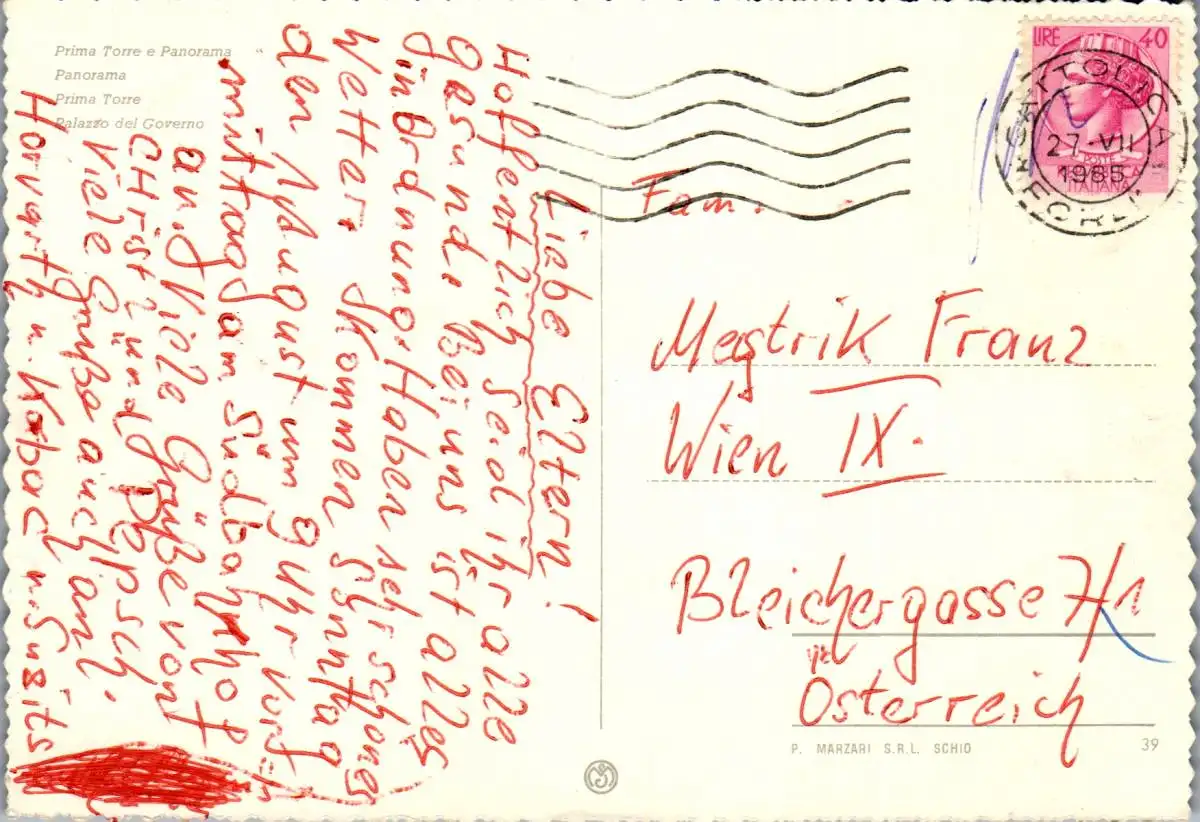 Prima Torre e Panorama
Panorama
Prima Torre
Palazzo del Governo
Liebe Eltern!
Hoffentlich seid ihr alle
gesund. Bei uns ist alles
in Ordnung. Haben sehr schönes
Wetter. Kommen Sonntag
den 1. August um 9 Uhr vor
mittags am Südbahnhof
an. Viele Grüße von
Christl und Pepsch.
Viele Grüße auch an
Horvarth u.
LIRE 40
POSTE
ITALIANA
CATTOLICA
27-VII
1965
Fam.
Franz
Wien IX.
Bleichergasse 7/1
Österreich
P. MARZARI S.R.L. SCHIO
39